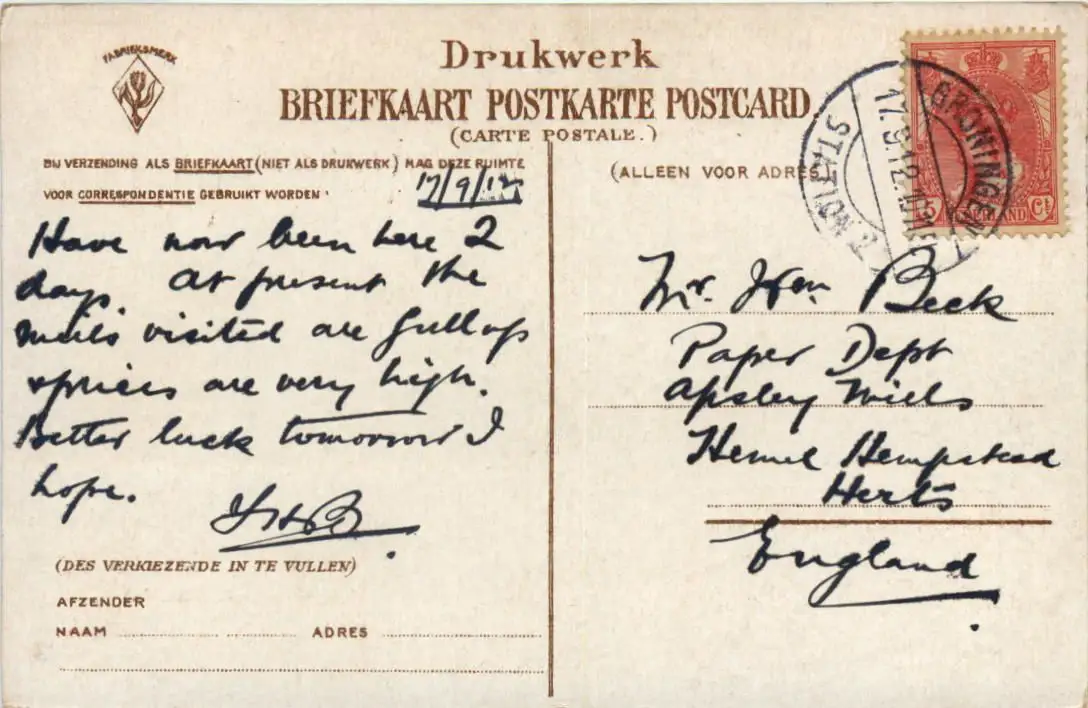 FABRIEKSMERK
Drukwerk
BRIEFKAART POSTKARTE POSTCARD
(CARTE POSTALE.)
BIJ VERZENDING ALS BRIEFKAART (NIET ALS DRUKWERK) MAG DEZE RUIMTE
VOOR CORRESPONDENTIE GEBRUIKT WORDEN
(ALLEEN VOOR ADRES
17/9/12
Have now been here 2
days. At present the
mills visited are full up
& prices are very high.
Better luck tomorrow I
hope.
(DES VERKIEZENDE IN TE VULLEN)
AFZENDER
NAAM ADRES
GRONINGEN
17.9.12.
STATION 2
5 Ct
NEDERLAND
Mr. Wm Beck
Paper Dept
Apsley Mills
Hemel Hempstead
Herts
England